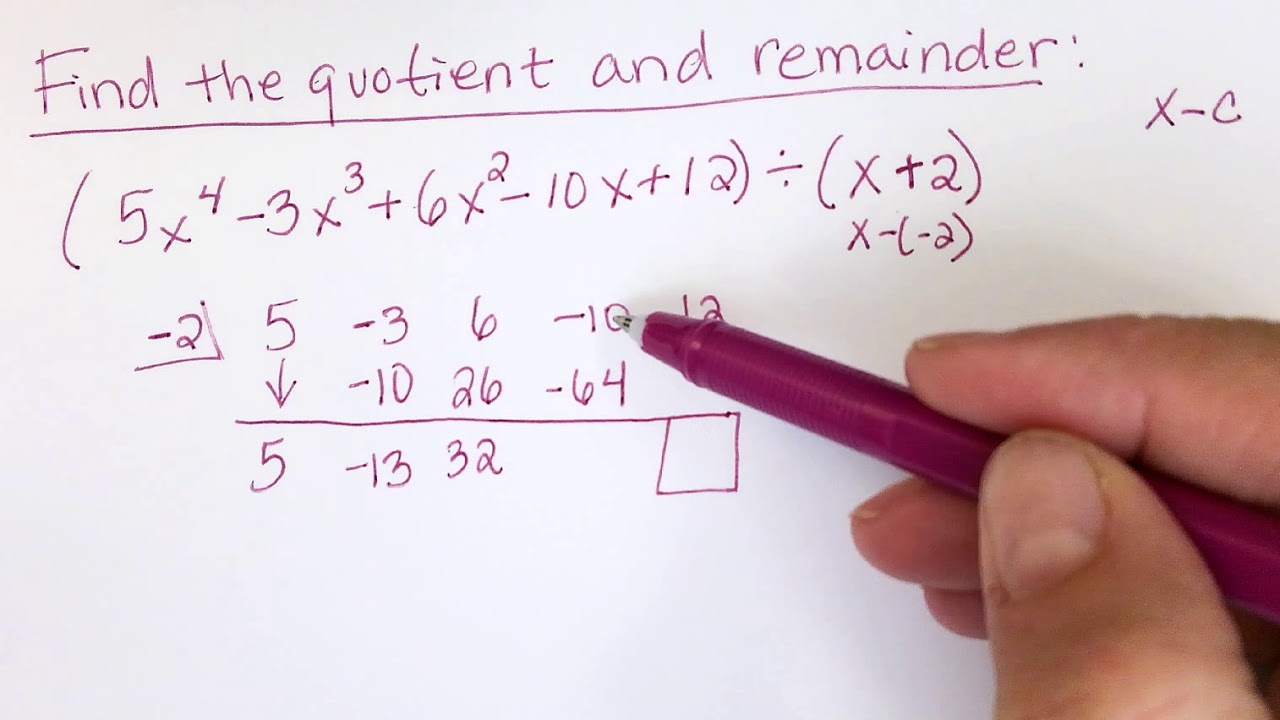 Find the quotient and remainder:
x-c
(5x⁴-3x³+6x²-10x+12)÷(x+2)
x-(-2)
-2| 5 -3 6 -10 12
↓ -10 26 -64
5 -13 32